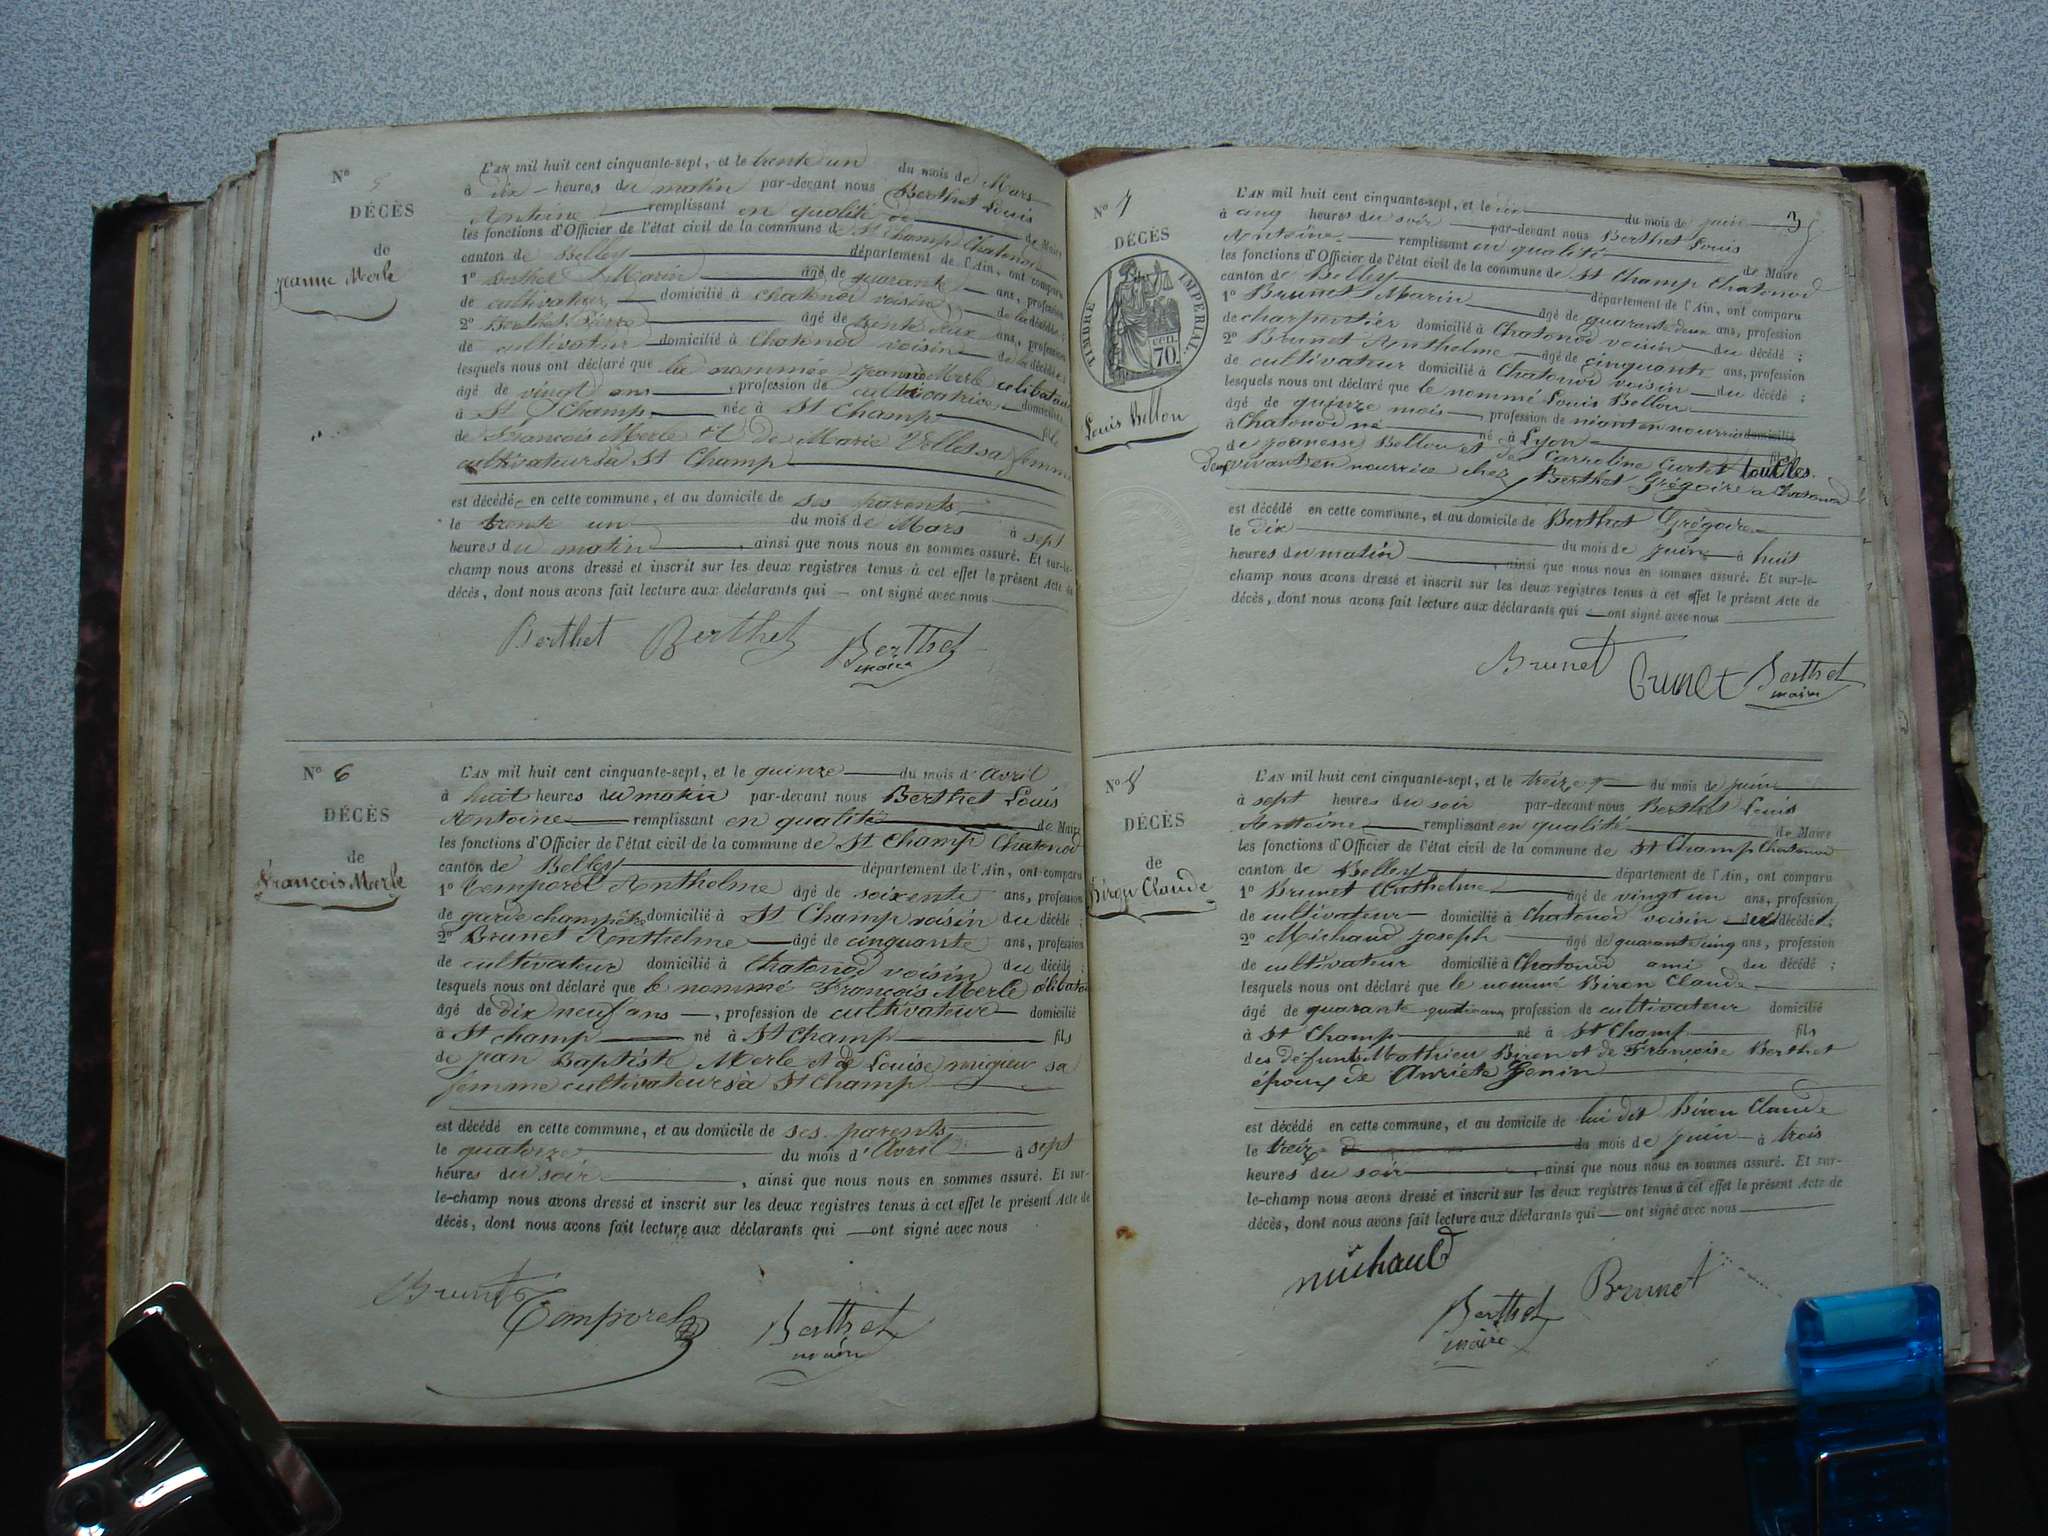 N° 5
DÉCÈS
de
Jeanne Merle
L'AN mil huit cent cinquante-sept, et le trente un du mois de Mars
à dix heures du matin par-devant nous Berthet Louis
Antoine remplissant en qualité de de Maire
les fonctions d'Officier de l'état civil de la commune de St Champ Chatonod
canton de Belley département de l'Ain, ont comparu
1° Berthet Marin âgé de quarante ans, profession
de cultivateur domicilié à Chatonod voisin de la décédée ;
2° Berthet Pierre âgé de trente deux ans, profession
de cultivateur domicilié à Chatonod voisin de la décédée ;
lesquels nous ont déclaré que la nommée Jeanne Merle célibataire
âgé de vingt ans , profession de cultivatrice domiciliée
à St Champ née à St Champ fille
de François Merle et de Marie Vellet sa femme
cultivateurs à St Champ
est décédée en cette commune, et au domicile de ses parents
le trente un du mois de Mars à sept
heures du matin , ainsi que nous nous en sommes assuré. Et sur-le-
champ nous avons dressé et inscrit sur les deux registres tenus à cet effet le présent Acte de
décès, dont nous avons fait lecture aux déclarants qui ont signé avec nous
Berthet Berthet Berthet
maire
N° 6
DÉCÈS
de
François Merle
L'AN mil huit cent cinquante-sept, et le quinze du mois d'avril
à huit heures du matin par-devant nous Berthet Louis
Antoine remplissant en qualité de Maire
les fonctions d'Officier de l'état civil de la commune de St Champ Chatonod
canton de Belley département de l'Ain, ont comparu
1° Temporel Anthelme âgé de soixente ans, profession
de garde champêtre domicilié à St Champ voisin du décédé ;
2° Brunet Anthelme âgé de cinquante ans, profession
de cultivateur domicilié à Chatonod voisin du décédé ;
lesquels nous ont déclaré que le nommé François Merle célibataire
âgé de dix neuf ans , profession de cultivateur domicilié
à St champ né à St Champ fils
de jean Baptiste Merle et de Louise migieu sa
femme cultivateurs à St Champ
est décédé en cette commune, et au domicile de ses parents
le quatorze du mois d'Avril à sept
heures du soir , ainsi que nous nous en sommes assuré. Et sur-
le-champ nous avons dressé et inscrit sur les deux registres tenus à cet effet le présent Acte de
décès, dont nous avons fait lecture aux déclarants qui ont signé avec nous
Brunet Temporel Berthet
maire
N° 7
DÉCÈS
TIMBRE IMPÉRIAL
CEN. 70.
Louis Bellou
L'AN mil huit cent cinquante-sept, et le dix du mois de juin
à cinq heures du soir par-devant nous Berthet Louis
Antoine remplissant en qualité de Maire
les fonctions d'Officier de l'état civil de la commune de St Champ Chatonod
canton de Belley département de l'Ain, ont comparu
1° Brunet Marin âgé de quarante deux ans, profession
de charpentier domicilié à Chatonod voisin du décédé ;
2° Brunet Anthelme âgé de cinquante ans, profession
de cultivateur domicilié à Chatonod voisin du décédé ;
lesquels nous ont déclaré que le nommé Louis Bellou
âgé de quinze mois , profession de néant en nourrice domicilié
à Chatonod né à Lyon fils
de Bellou et de Carroline tout les
deux vivant en nourrice chez Berthet Grégoire a Chatonod
est décédé en cette commune, et au domicile de Berthet Grégoire
le dix du mois de juin à huit
heures du matin , ainsi que nous nous en sommes assuré. Et sur-le-
champ nous avons dressé et inscrit sur les deux registres tenus à cet effet le présent Acte de
décès, dont nous avons fait lecture aux déclarants qui ont signé avec nous
Brunet Brunet Berthet
maire
N° 8
DÉCÈS
de
Biron Claude
L'AN mil huit cent cinquante-sept, et le treize du mois de juin
à sept heures du soir par-devant nous Berthet Louis
Antoine remplissant en qualité de Maire
les fonctions d'Officier de l'état civil de la commune de St Champ Chatonod
canton de Belley département de l'Ain, ont comparu
1° Brunet Anthelme âgé de vingt un ans, profession
de cultivateur domicilié à Chatonod voisin du décédé ;
2° Michaud joseph âgé de quarante cinq ans, profession
de cultivateur domicilié à Chatonod ami du décédé ;
lesquels nous ont déclaré que le nommé Biron Claude
âgé de quarante quatre ans profession de cultivateur domicilié
à St Champ né à St Champ fils
des défunts Mathieu Biron et de Françoise Berthet
époux de Anriete Genin
est décédé en cette commune, et au domicile de lui dit Biron Claude
le treize du mois de juin à trois
heures du soir , ainsi que nous nous en sommes assuré. Et sur-
le-champ nous avons dressé et inscrit sur les deux registres tenus à cet effet le présent Acte de
décès, dont nous avons fait lecture aux déclarants qui ont signé avec nous
michaud
Berthet Brunet
maire